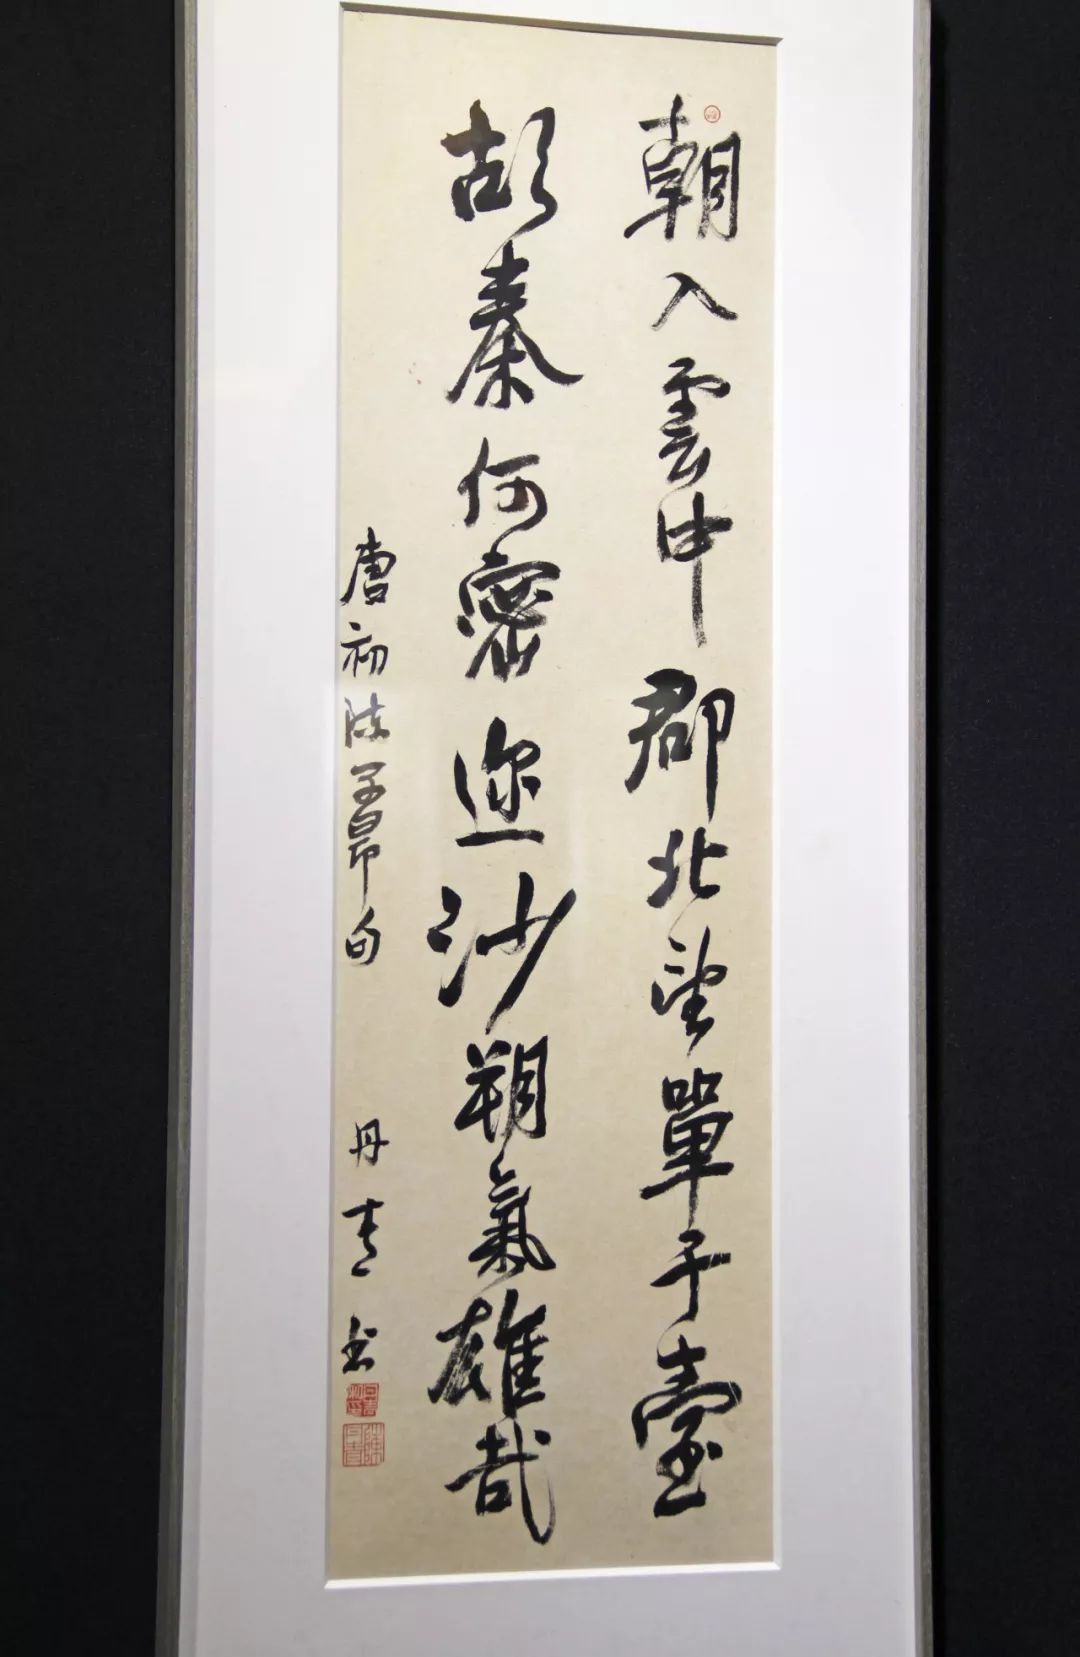 朝入雲中郡北望單于臺
胡秦何密迩沙朔氣雄哉
唐初陳子昂句
丹青书